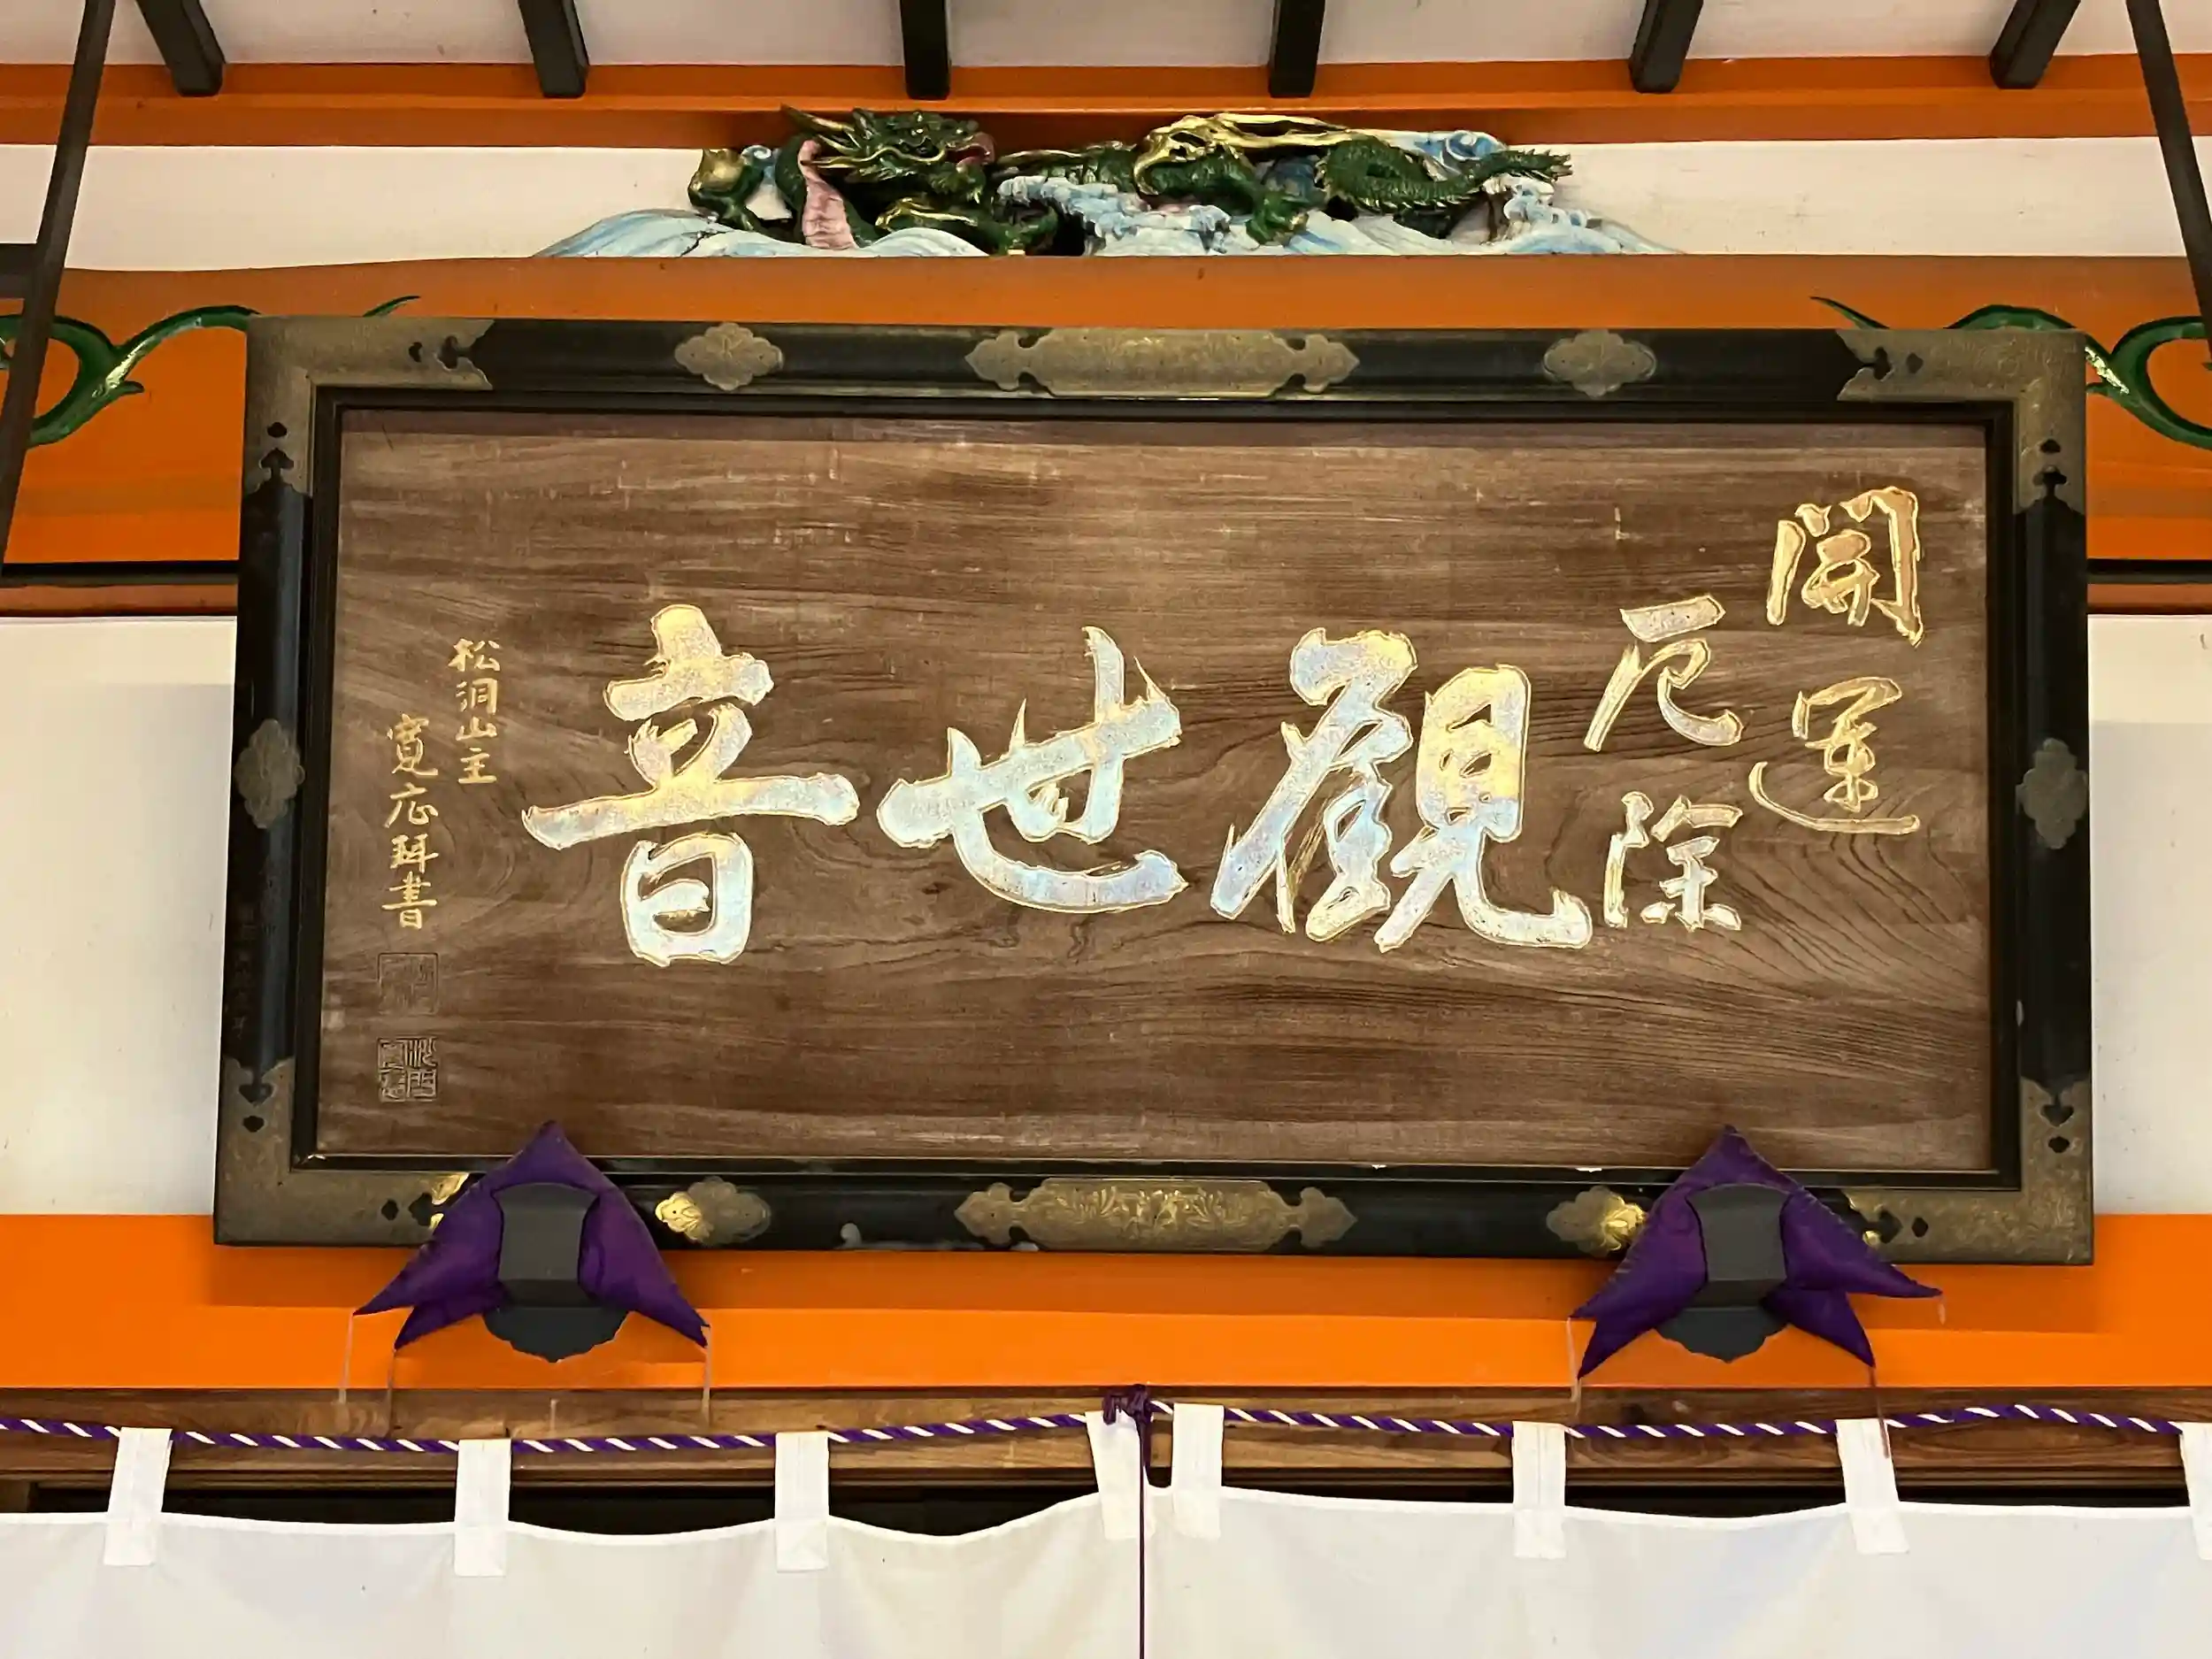 開運
厄除
觀世音
松洞山主
寛応拜書
沙門